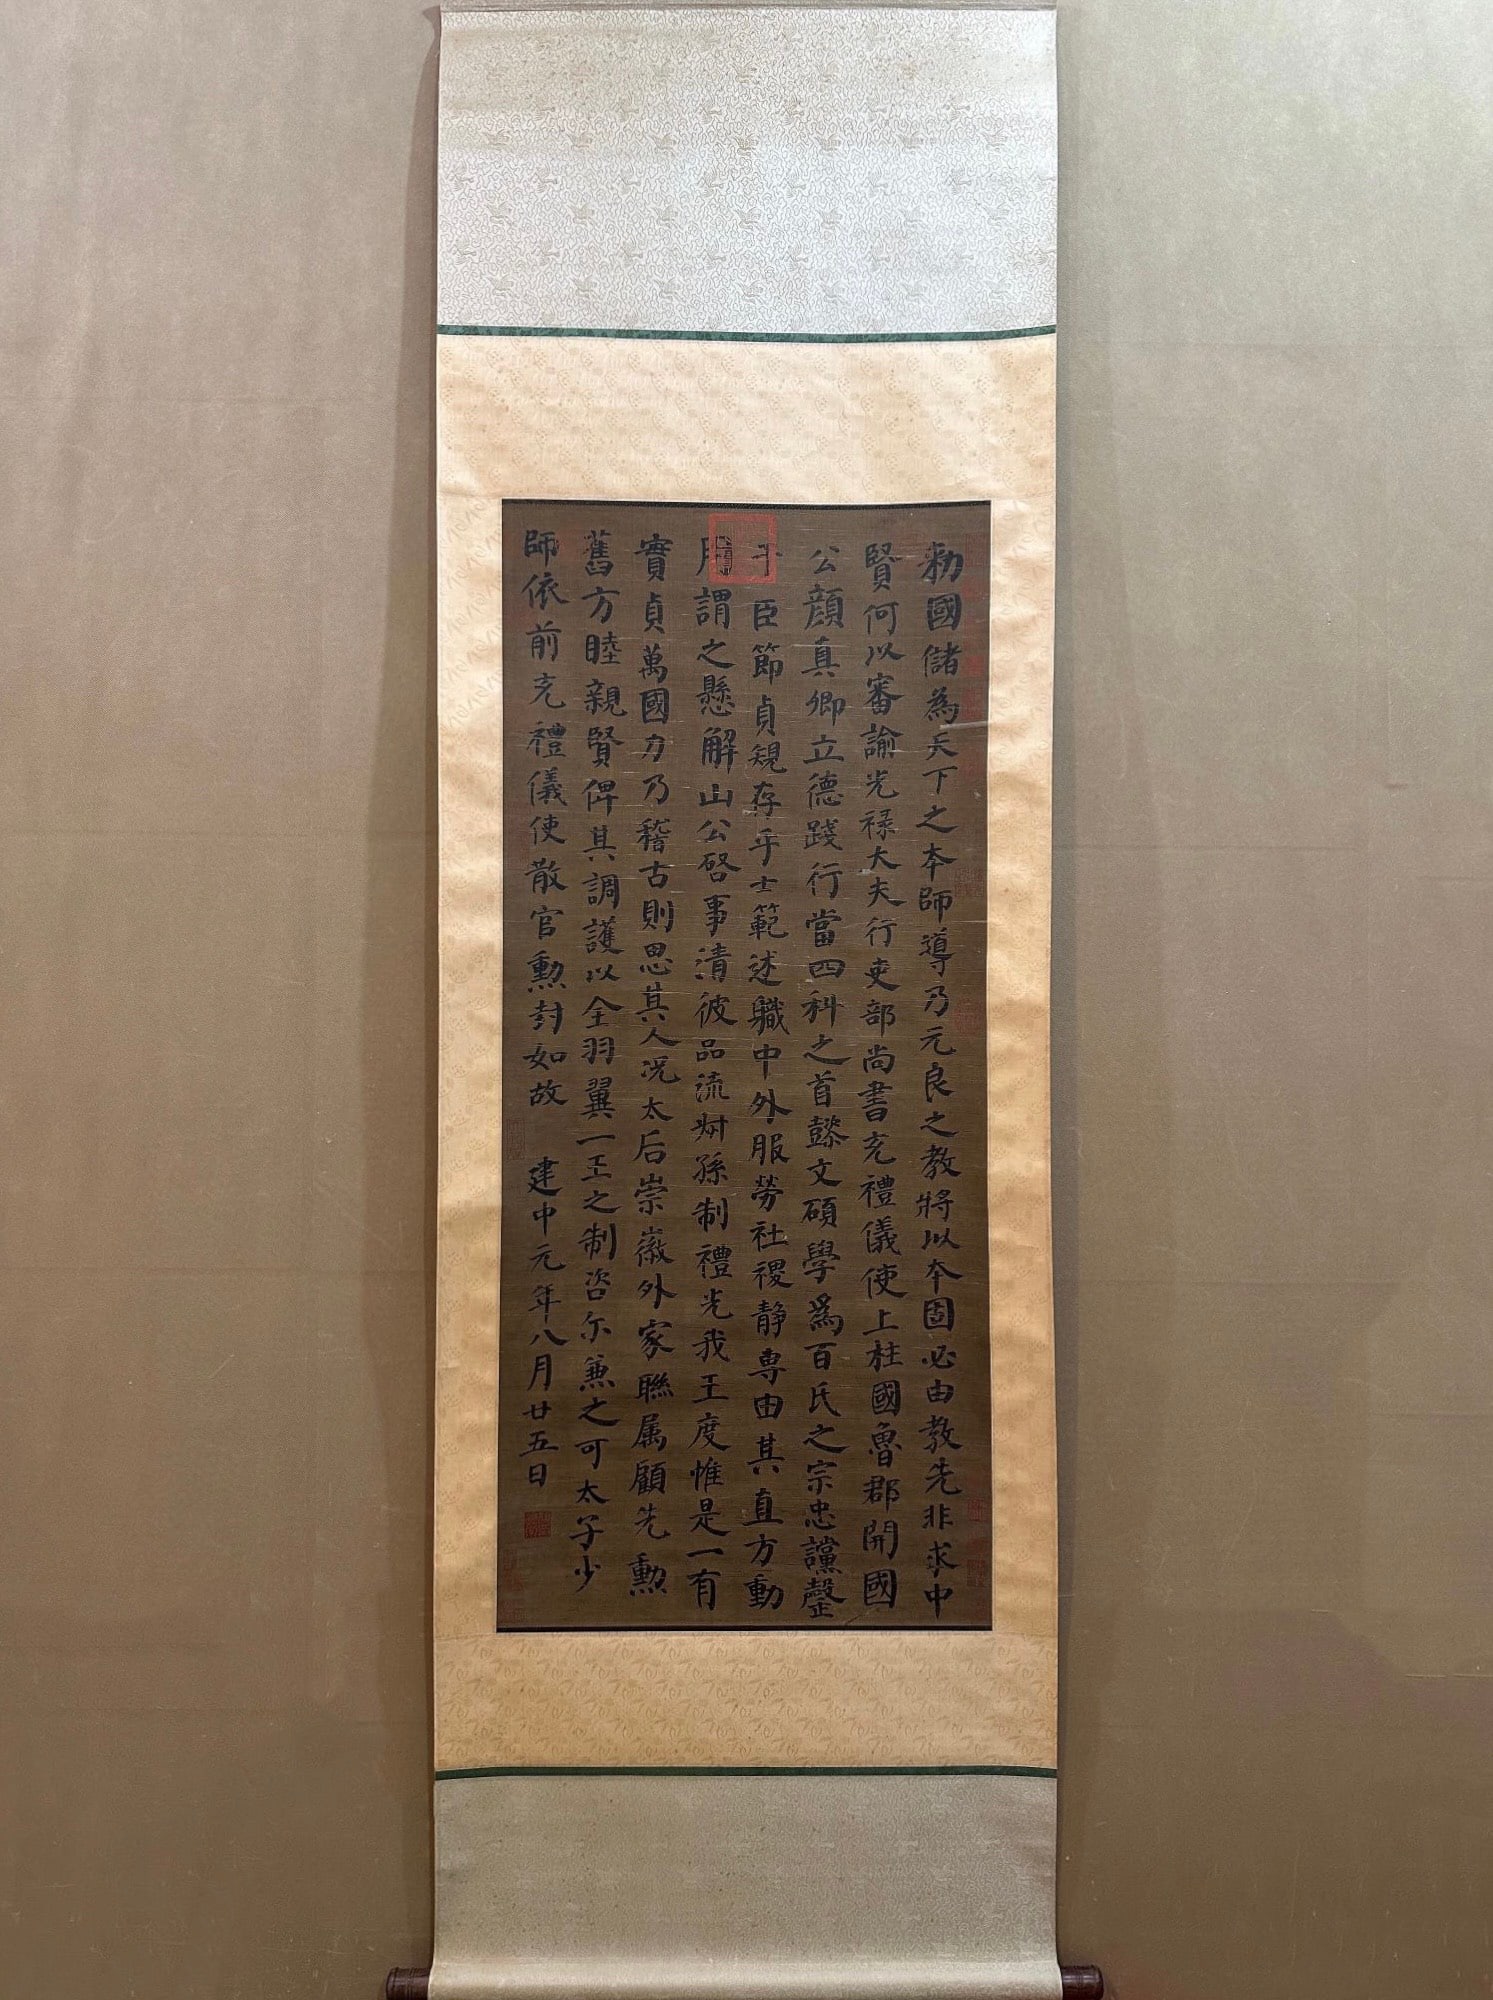 勑國儲為天下之本師導乃元良之教將以本固必由教先非求中
賢何以審諭光祿大夫行吏部尚書充禮儀使上柱國魯郡開國
公顏真卿立德踐行當四科之首懿文碩學為百氏之宗忠讜罄
于臣節貞規存乎士範述職中外服勞社稷靜專由其直方動
用謂之懸解山公啓事清彼品流叔孫制禮光我王度惟是一有
實貞萬國力乃稽古則思其人況太后崇徽外家聯属顧先勲
舊方睦親賢俾其調護以全羽翼一王之制咨尔兼之可太子少
師依前充禮儀使散官勲封如故 建中元年八月廿五日